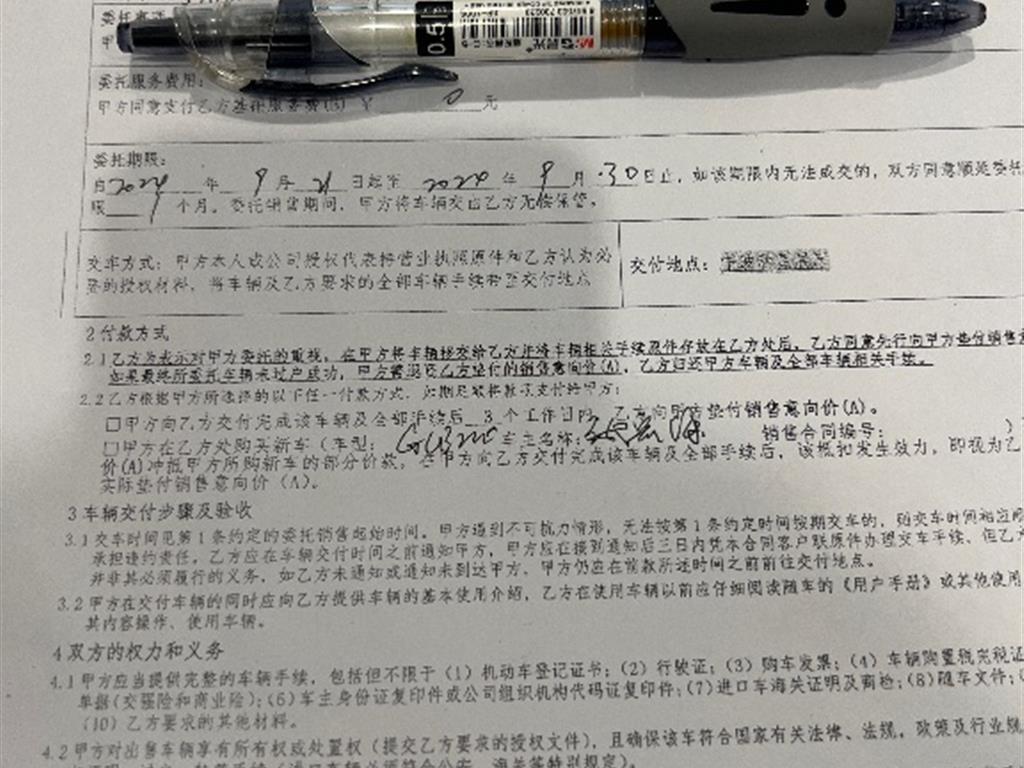 委托事项
甲
0.5
晨光
委托服务费用：
甲方同意支付乙方委托服务费(B) ￥ 0 元
委托期限：
自2024年9月21日起至2024年9月30日止，如该期限内无法成交的，双方同意顺延委托
限 1 个月。委托销售期间，甲方将车辆交由乙方无偿保管。
交车方式：甲方本人或公司授权代表持营业执照原件和乙方认为必
要的授权材料，将车辆及乙方要求的全部车辆手续带至交付地点
交付地点：
2 付款方式
2.1 乙方为表示对甲方委托的重视，在甲方将车辆移交给乙方并将车辆相关手续原件存放在乙方处后，乙方同意先行向甲方垫付销售意
如果最终所委托车辆未过户成功，甲方需退还乙方垫付的销售意向价(A)，乙方归还甲方车辆及全部车辆相关手续。
2.2 乙方根据甲方所选择的以下任一付款方式，如期足额将款项支付给甲方：
□甲方向乙方交付完成该车辆及全部手续后 3 个工作日内，乙方向甲方垫付销售意向价(A)。
□甲方在乙方处购买新车（车型： 车主名称： 销售合同编号： ）
价(A)冲抵甲方所购新车的部分价款，在甲方向乙方交付完成该车辆及全部手续后，该抵扣发生效力，即视为乙
实际垫付销售意向价（A）。
3 车辆交付步骤及验收
3.1 交车时间见第1条约定的委托销售起始时间。甲方遇到不可抗力情形，无法按第1条约定时间按期交车的，则交车时间相应顺
承担违约责任。乙方应在车辆交付时间之前通知甲方，甲方应在接到通知后三日内凭本合同客户联原件办理交车手续。但乙方
并非其必须履行的义务，如乙方未通知或通知未到达甲方，甲方仍应在前款所述时间之前前往交付地点。
3.2 甲方在交付车辆的同时应向乙方提供车辆的基本使用介绍，乙方在使用车辆以前应仔细阅读随车的《用户手册》或其他使用
其内容操作、使用车辆。
4 双方的权力和义务
4.1 甲方应当提供完整的车辆手续，包括但不限于（1）机动车登记证书；（2）行驶证；（3）购车发票；（4）车辆购置税完税证
单据(交强险和商业险)；(6)车主身份证复印件或公司组织机构代码证复印件；(7)进口车海关证明及商检；(8)随车文件；(
（10）乙方要求的其他材料。
4.2 甲方对出售车辆享有所有权或处置权（提交乙方要求的授权文件），且确保该车符合国家有关法律、法规、政策及行业规